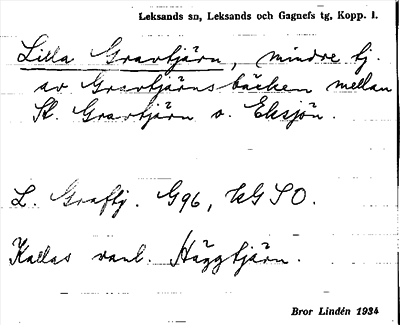 Leksands sn, Leksands och Gagnefs tg, Kopp. l.
Lilla Gravtjärn, mindre tj.
av Gravtjärnsbäcken mellan
St. Gravtjärn o. Eksjön.
L. Graftj. G96, KG SO.
Kallas vanl. Häggtjärn.
Bror Lindén 1934